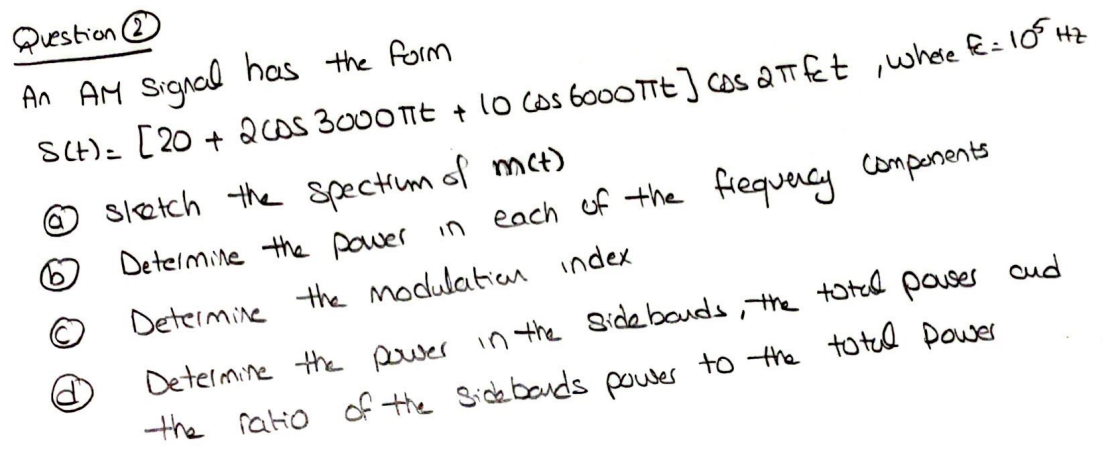 Question ②
An AM Signal has the form
S(t)= [20 + 2cos 3000πt + 10 cos 6000πt] cos 2πfct , where fc=10⁵ Hz
ⓐ sketch the spectrum of m(t)
ⓑ Determine the power in each of the frequency components
ⓒ Determine the modulation index
ⓓ Determine the power in the sidebands, the total power and
the ratio of the sidebands power to the total power